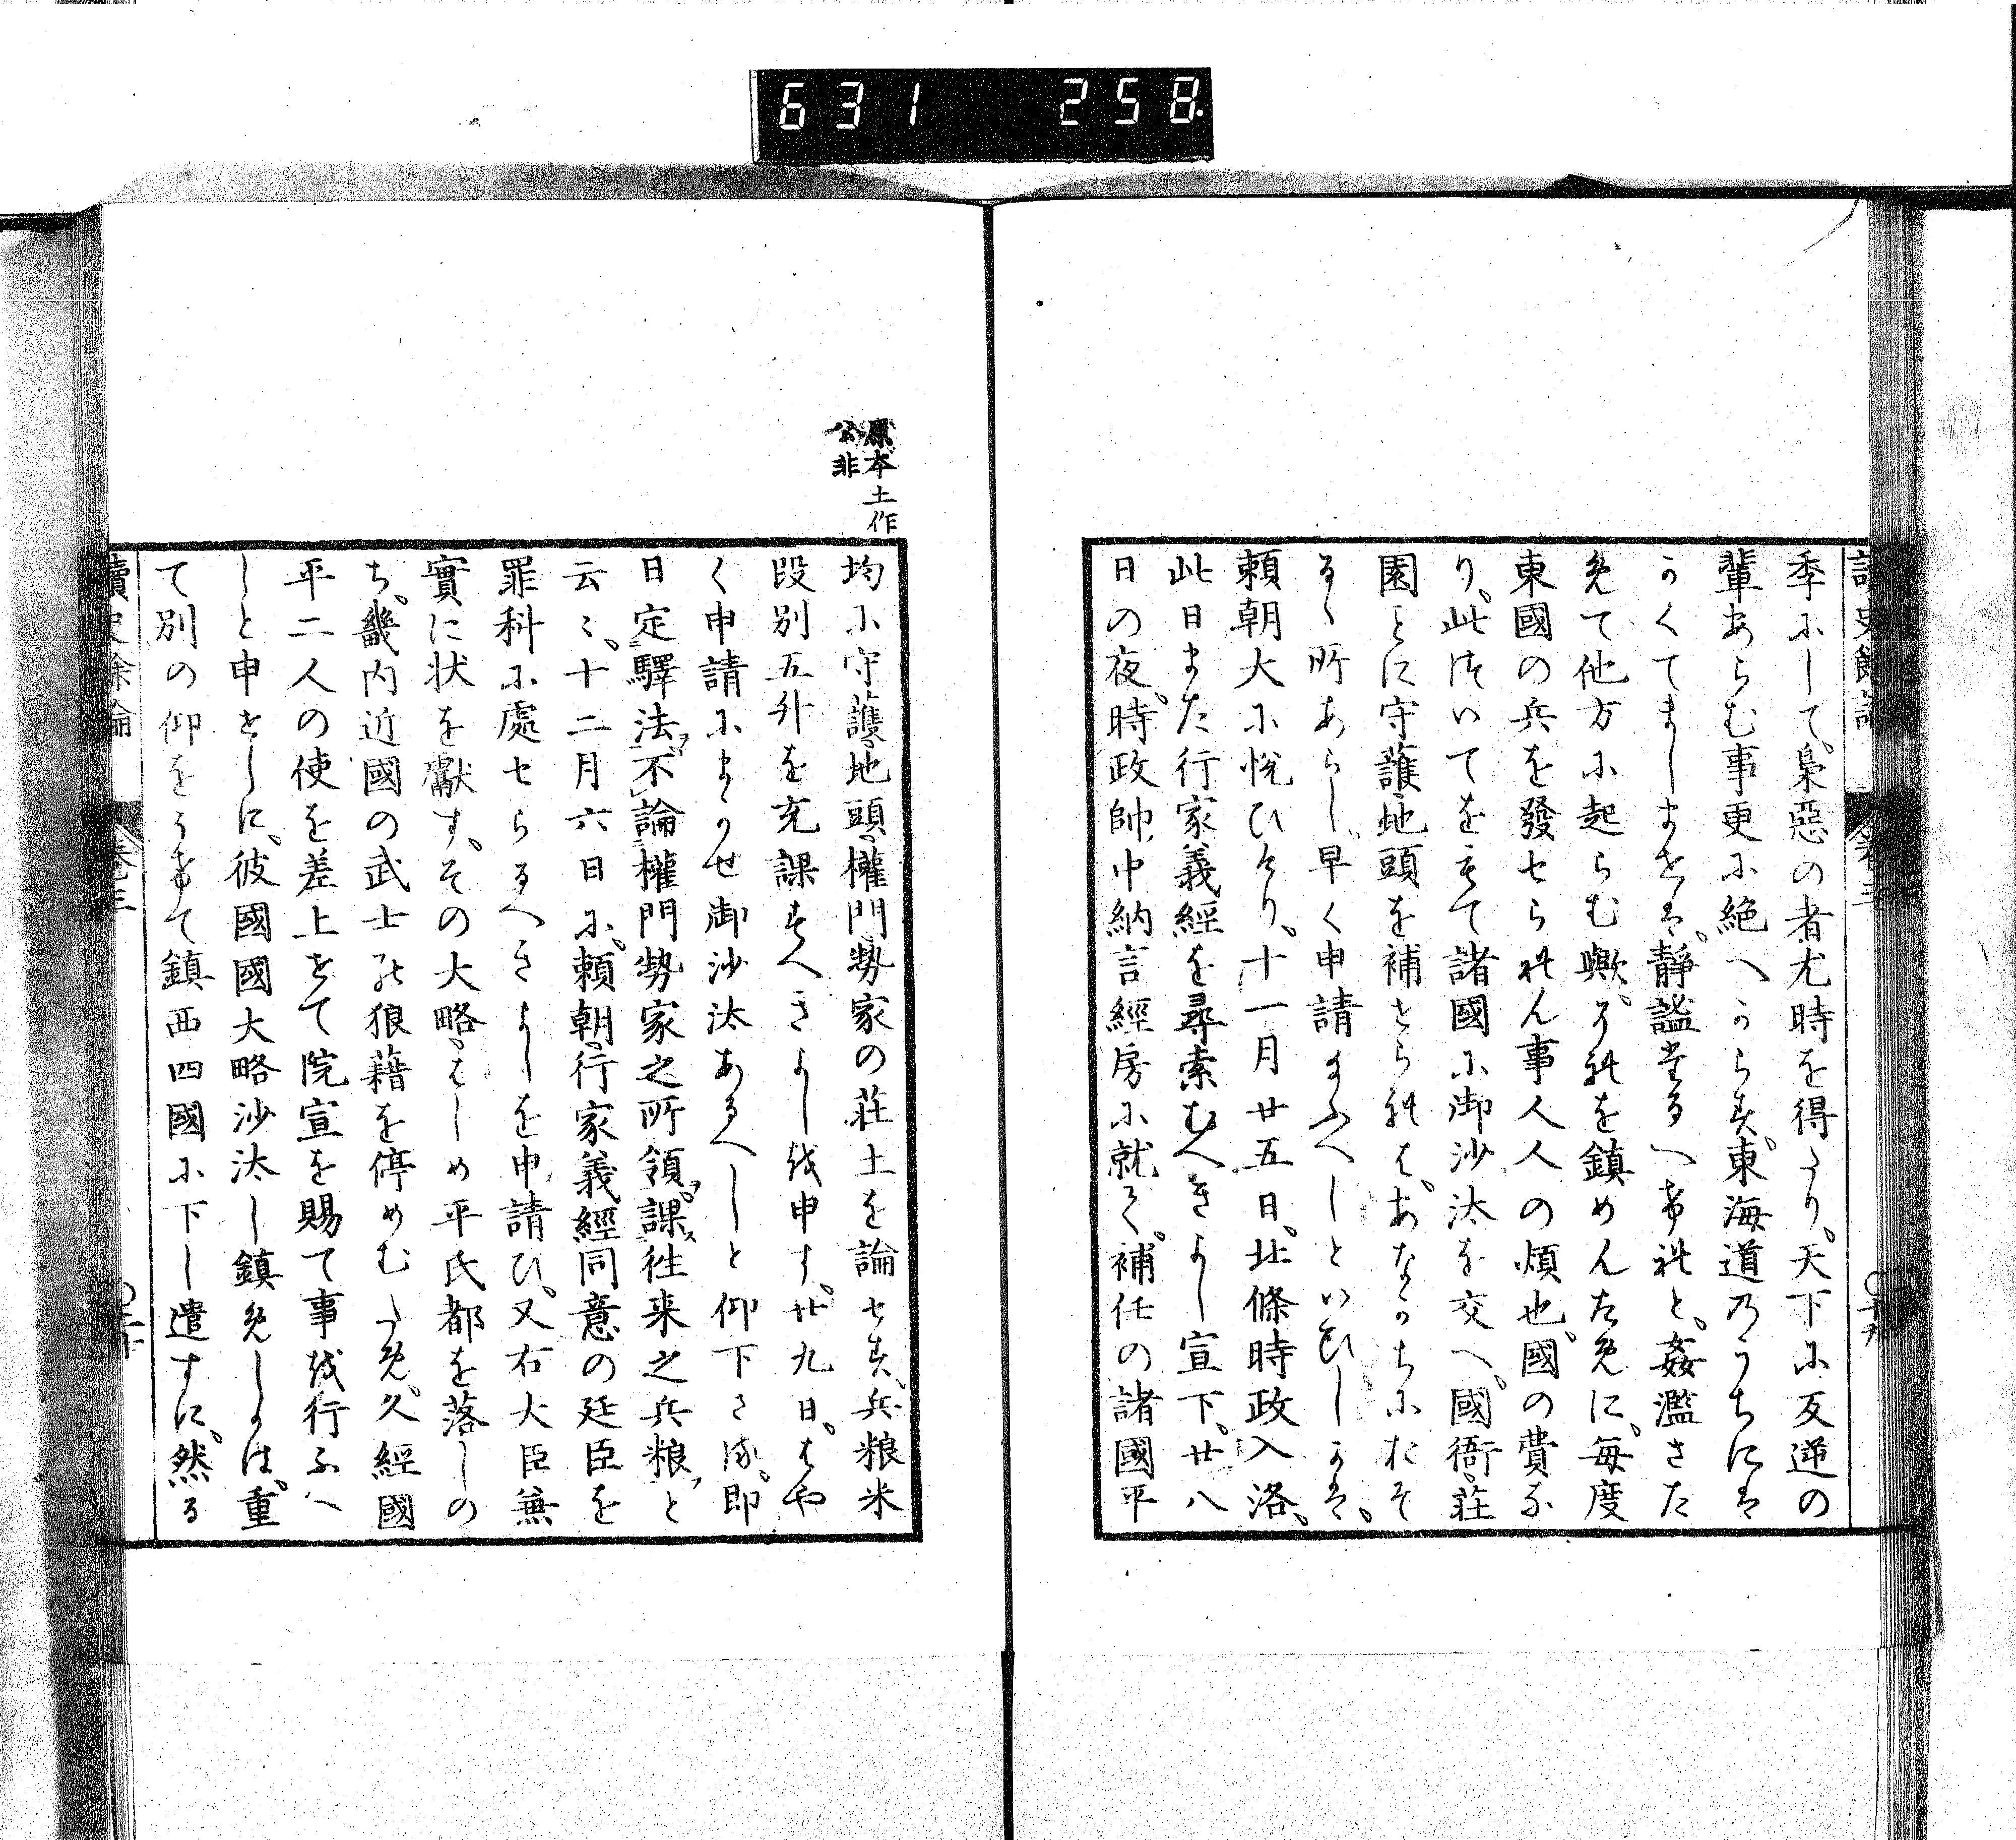 631 258
讀史餘論 卷三 〇十九
季にして、梟惡の者尤時を得たり、天下に反逆の
輩あらむ事更に絶へからす、東海道のうちには
かくてましませは、靜謐たるへけれと、姦濫さた
めて他方に起らむ歟、それを鎮めんために、毎度
東國の兵を發せられん事人人の煩也、國の費な
り、此次いてをもて諸國に御沙汰を交へ、國衙、莊
園ことに守護、地頭を補せられは、あなかちにおそ
るゝ所あらし、早く申請まふへしといひしかは、
賴朝大に悅ひけり、十一月廿五日、北條時政入洛、
此日また行家義經を尋索むへきよし宣下、廿八
日の夜、時政帥中納言經房に就て、補任の諸國平
原本土作
公非
均に守護、地頭、權門、勢家の莊土を論せす、兵粮米
段別五升を充課すへきよし以申す、廿九日、はや
く申請にまかせ御沙汰あるへしと仰下さる、即
日定驛法、不論權門勢家之所領、課往来之兵粮と
云々、十二月六日に、賴朝、行家義經同意の廷臣を
罪科に處せらるへきよしを申請ひ、又右大臣兼
實に状を獻す、その大略、はしめ平氏都を落しの
ち、畿内近國の武士の狼藉を停めむため、久經國
平二人の使を差上せて院宣を賜て事を行ふへ
しと申せしに、彼國國大略沙汰し鎮めしかは、重
て別の仰をうけて鎮西四國に下し遣すに、然る
讀史餘論 卷三 〇二十